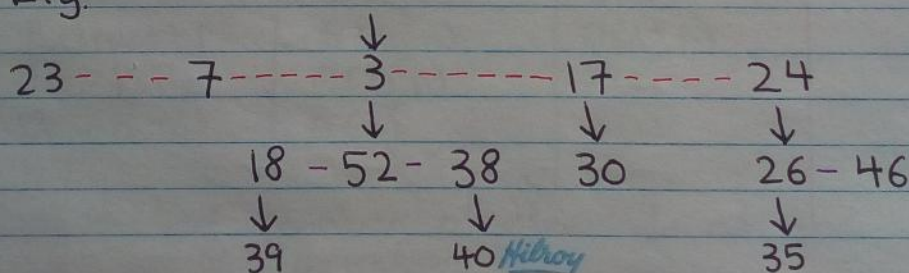 Eg.
↓
23 - - - 7 - - - - - 3 - - - - - - - 17 - - - - 24
↓ ↓ ↓
18 - 52 - 38 30 26 - 46
↓ ↓ ↓
39 40 Hilroy 35